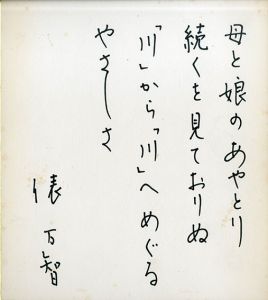 母と娘のあやとり
続くを見ておりぬ
「川」から「川」へめぐる
やさしさ
俵万智